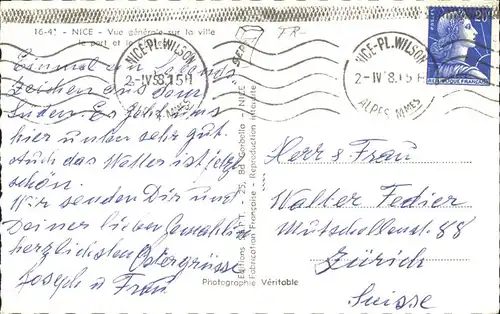 16-4 - NICE - Vue générale sur la ville
le port et le
NICE-PL. WILSON
2-IV 8.15 H
ALPES MMES
NICE-PL. WILSON
2-IV 8.15 H
ALPES MMES
20F
RÉPUBLIQUE FRANÇAISE
Einmal ein Lebens
Zeichen aus dem
Süden. Es geht uns
hier unten sehr gut.
Auch das Wetter ist jetzt
schön.
Wir senden Dir und
Deiner lieben Gemahlin
herzlichsten Ostergrüsse
Joseph u Frau
Editions 25, Bd Gorbella - NICE
Fabrication Française - Reproduction interdite
Photographie Véritable
Herr & Frau
Walter Federer
Mutschellenstr. 88
Zürich
Suisse